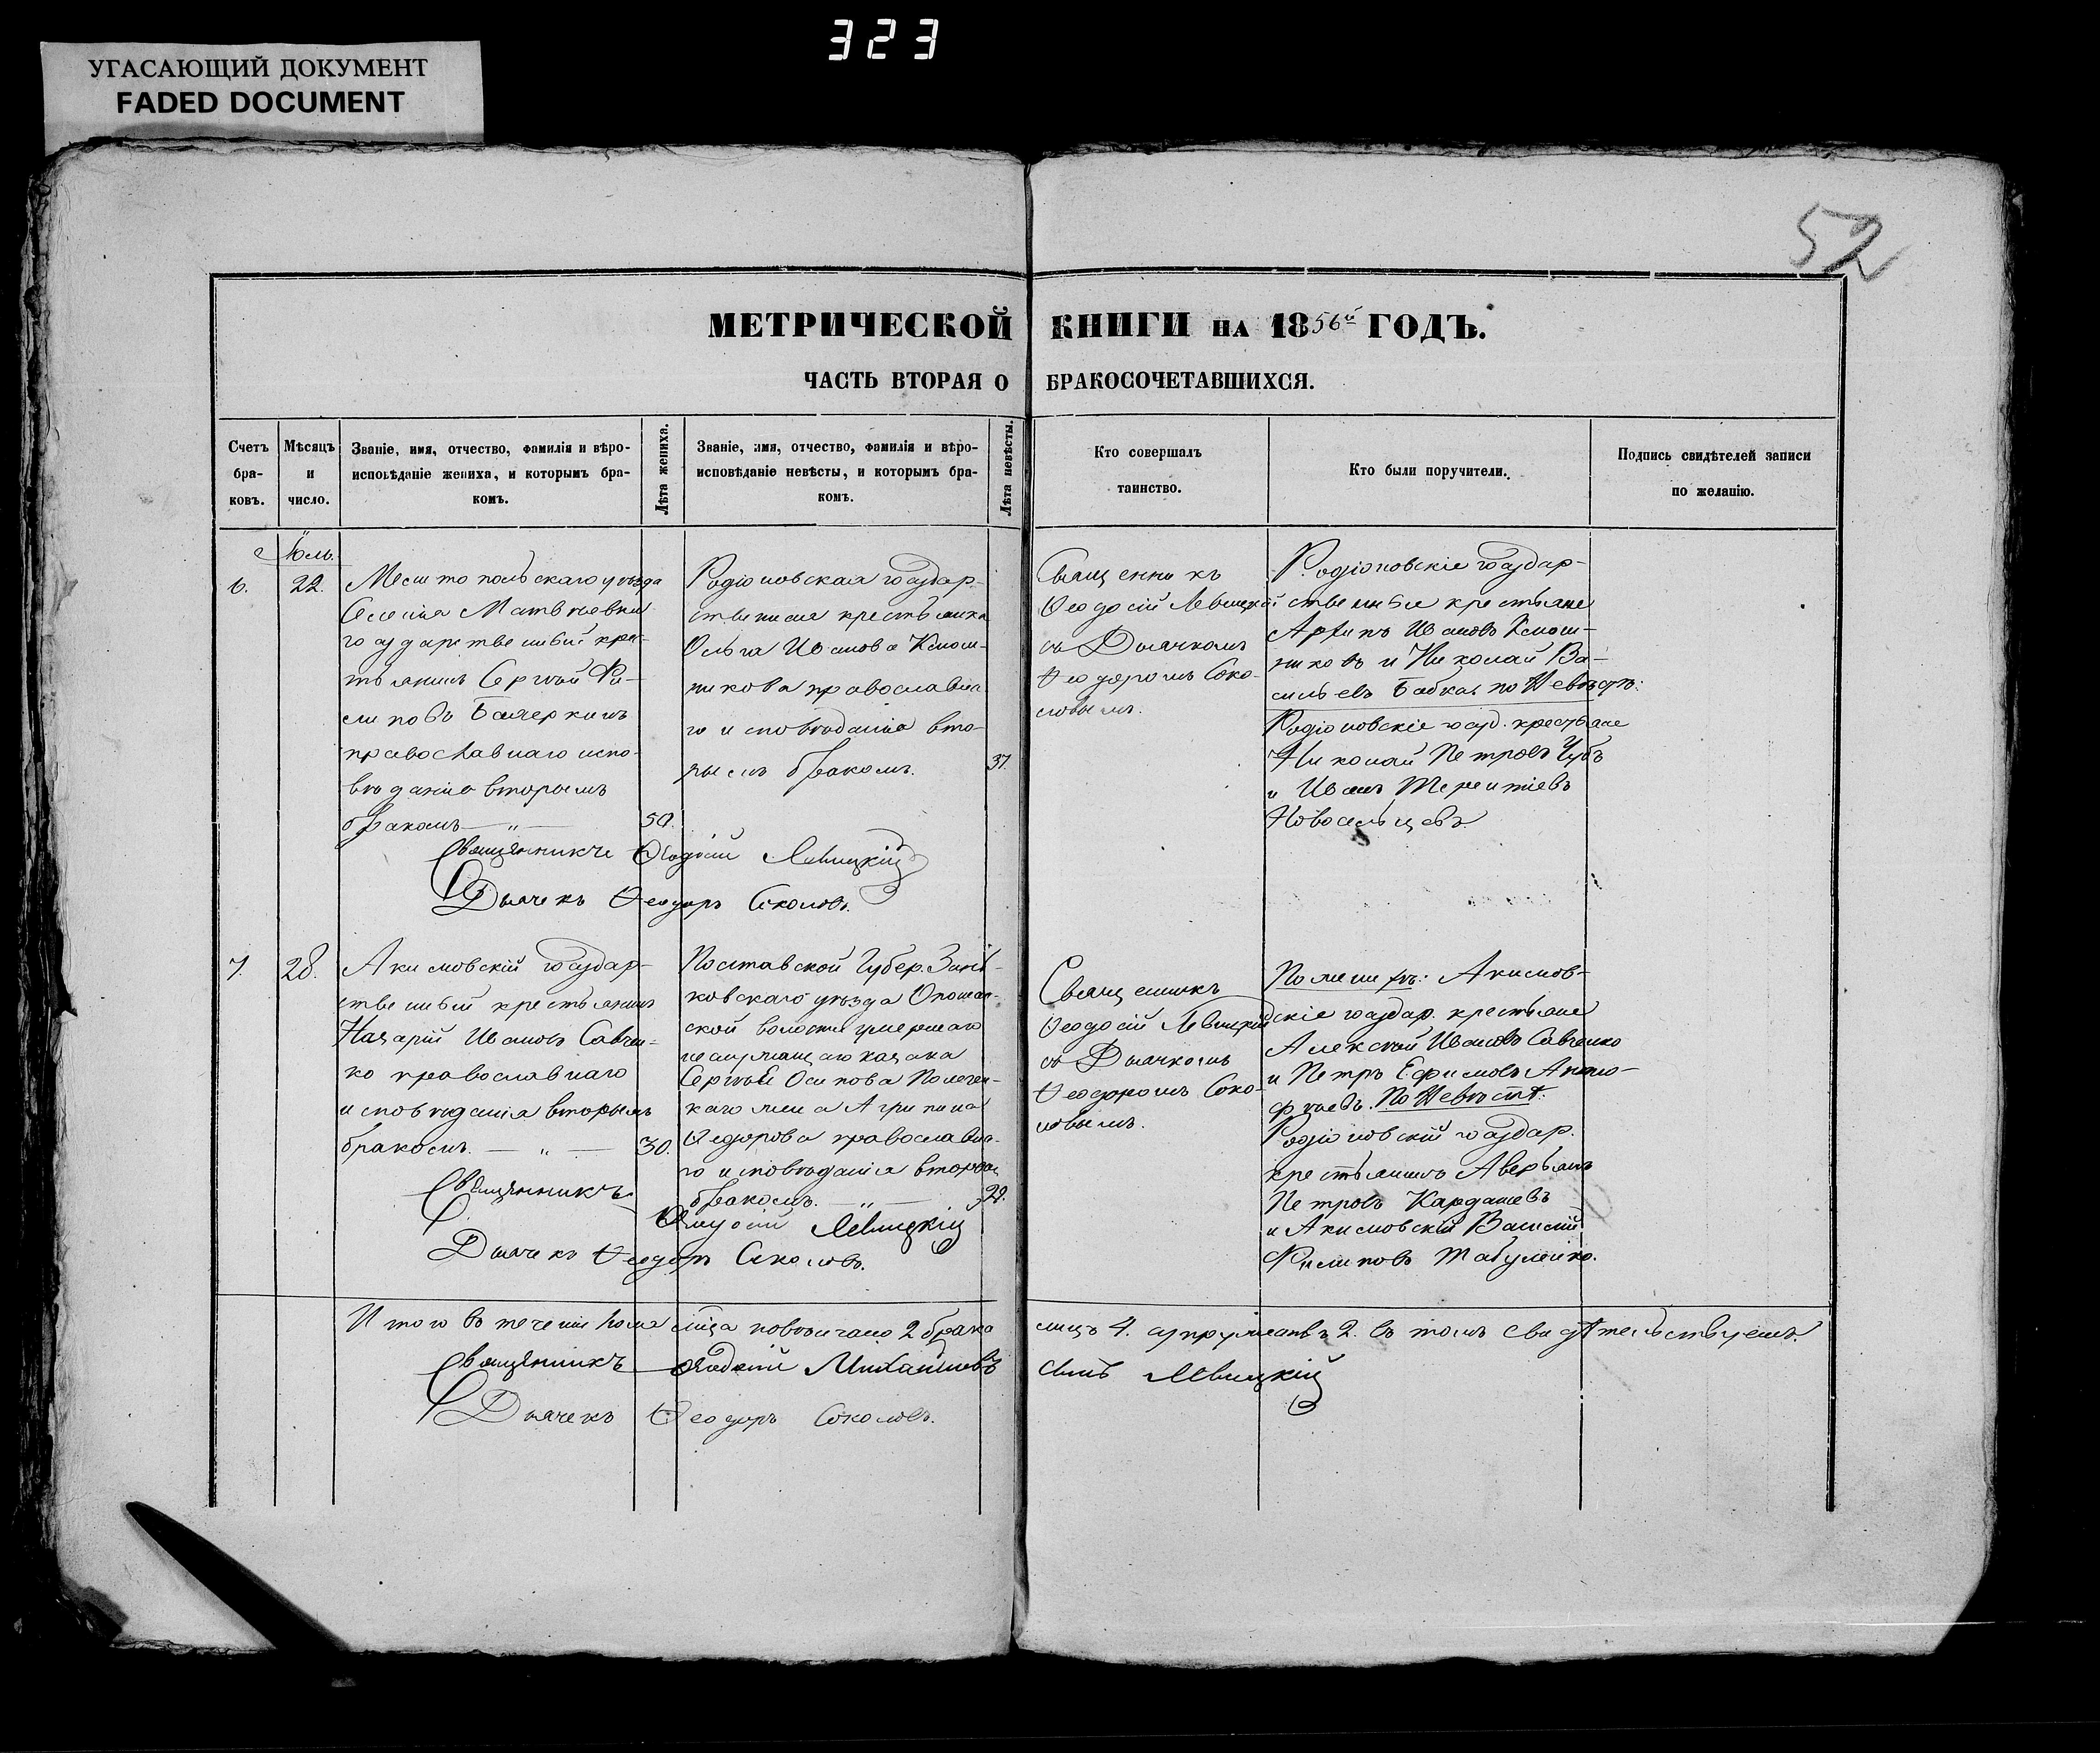 323
УГАСАЮЩИЙ ДОКУМЕНТ
FADED DOCUMENT
52
МЕТРИЧЕСКОЙ КНИГИ НА 1856й ГОДЪ.
ЧАСТЬ ВТОРАЯ О БРАКОСОЧЕТАВШИХСЯ.
Счетъ
бра-
ковъ.
Мѣсяцъ
и
число.
Званіе, имя, отчество, фамилія и вѣро-
исповѣданіе жениха, и которымъ бра-
комъ.
Лѣта жениха.
Званіе, имя, отчество, фамилія и вѣро-
исповѣданіе невѣсты, и которымъ бра-
комъ.
Лѣта невѣсты.
Кто совершалъ
таинство.
Кто были поручители.
Подпись свидѣтелей записи
по желанію.
6.
Іюль.
22.
Мелитопольскаго уѣзда
Селенія Матвѣевки
государственный крес-
тьянинъ Сергѣй Фи-
липовъ
православнаго испо-
вѣданія вторымъ
бракомъ — „ —
50.
Родіоновская государ-
ственная крестьянка
Ольга Иванова
православна-
го исповѣданія вто-
рымъ бракомъ.
37.
Священникъ
Ѳеодосій Левицкій
съ Дьячкомъ
Ѳеодоромъ Соко-
ловымъ.
Родіоновскіе государ-
ственные крестьяне
Архипъ Ивановъ
и Николай Ва-
сильевъ Бабка. по Невѣстѣ:
Родіоновскіе госуд. крестьяне
Николай Петровъ Чубъ
и Иванъ Терентіевъ
Новосельцевъ.
Священникъ Ѳеодосій Левицкій
Дьячекъ Ѳеодоръ Соколовъ.
7.
28.
Акимовскій государ-
ственный крестьянинъ
Назарій Ивановъ Савчен-
ко православнаго
исповѣданія вторымъ
бракомъ. — „ —
30.
Полтавской Губер. Зинь-
ковскаго уѣзда Опошан-
ской волости умершаго
казака
Сергѣя Осипова
жена Агрипина
Ѳедорова православна-
го исповѣданія вторымъ
бракомъ. — „ —
29.
Священникъ
Ѳеодосій Левицкій
съ Дьячкомъ
Ѳеодоромъ Соко-
ловымъ.
По жених: Акимов-
скіе государ. крестьяне
Алексѣй Ивановъ Савченко
и Петръ Ефимовъ
По Невѣстѣ:
Родіоновскій государ.
крестьянинъ Аверьянъ
Петровъ Кардашевъ
и Акимовскій Василій
Филиповъ Табуленко.
Священникъ
Ѳеодосій Левицкій
Дьячекъ Ѳеодоръ Соколовъ.
Итого въ теченіи Іюля мѣсяца повѣнчано 2 брака лицъ 4. супружествъ 2. въ томъ свидѣтельствуемъ.
Священникъ Ѳеодосій Михайловъ сынъ Левицкій
Дьячекъ Ѳеодоръ Соколовъ.